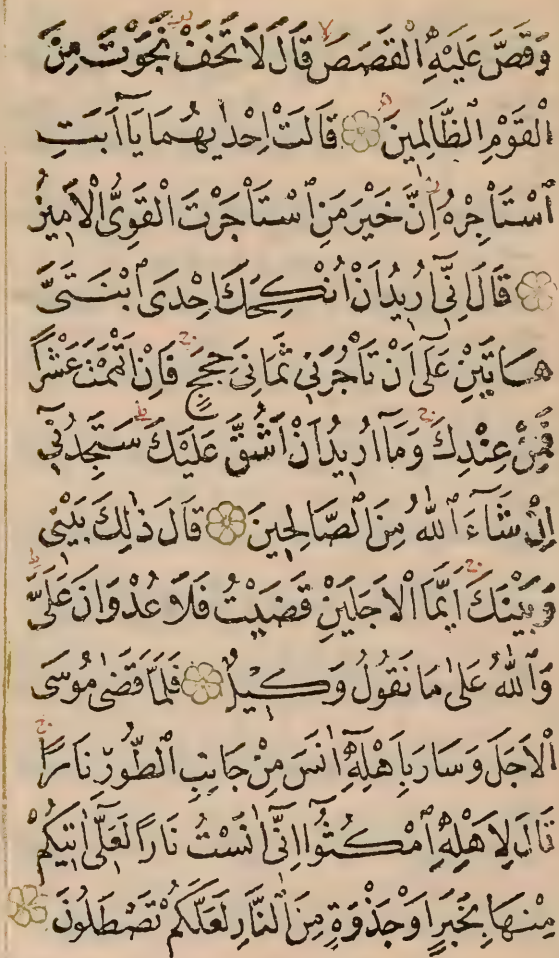 وَقَصَّ عَلَيْهِ الْقَصَصَ قَالَ لَا تَخَفْ نَجَوْتَ مِنَ
الْقَوْمِ الظَّالِمِينَ قَالَتْ اِحْدٰيهُمَا يَٓا اَبَتِ
اسْتَأْجِرْهُ اِنَّ خَيْرَ مَنِ اسْتَأْجَرْتَ الْقَوِيُّ الْاَمِينُ
قَالَ اِنّٓي اُرِيدُ اَنْ اُنْكِحَكَ اِحْدَى ابْنَتَيَّ
هَاتَيْنِ عَلٰٓى اَنْ تَأْجُرَنِي ثَمَانِيَ حِجَجٍ فَاِنْ اَتْمَمْتَ عَشْرًا
فَمِنْ عِنْدِكَ وَمَٓا اُرِيدُ اَنْ اَشُقَّ عَلَيْكَ سَتَجِدُنِٓي
اِنْ شَٓاءَ اللّٰهُ مِنَ الصَّالِحِينَ قَالَ ذٰلِكَ بَيْنِي
وَبَيْنَكَ اَيَّمَا الْاَجَلَيْنِ قَضَيْتُ فَلَا عُدْوَانَ عَلَيَّ
وَاللّٰهُ عَلٰى مَا نَقُولُ وَكِيلٌ فَلَمَّا قَضٰى مُوسَى
الْاَجَلَ وَسَارَ بِاَهْلِهٓ اٰنَسَ مِنْ جَانِبِ الطُّورِ نَارًا
قَالَ لِاَهْلِهِ امْكُثُٓوا اِنّٓي اٰنَسْتُ نَارًا لَعَلّٓي اٰتِيكُمْ
مِنْهَا بِخَبَرٍ اَوْ جَذْوَةٍ مِنَ النَّارِ لَعَلَّكُمْ تَصْطَلُونَ